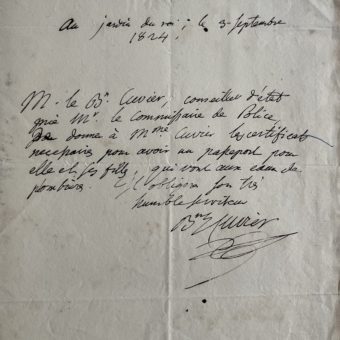 Au jardin du roi, le 3 septembre
1824,
M. le Bn. Cuvier, conseiller d'état
prie Mr. le Commissaire de Police,
de donner à Mme Cuvier les certificats
necessaires pour avoir un passeport pour
elle et sa fille, qui vont aux eaux de
plombières. Il obligera son très
humble serviteur
Bn Cuvier